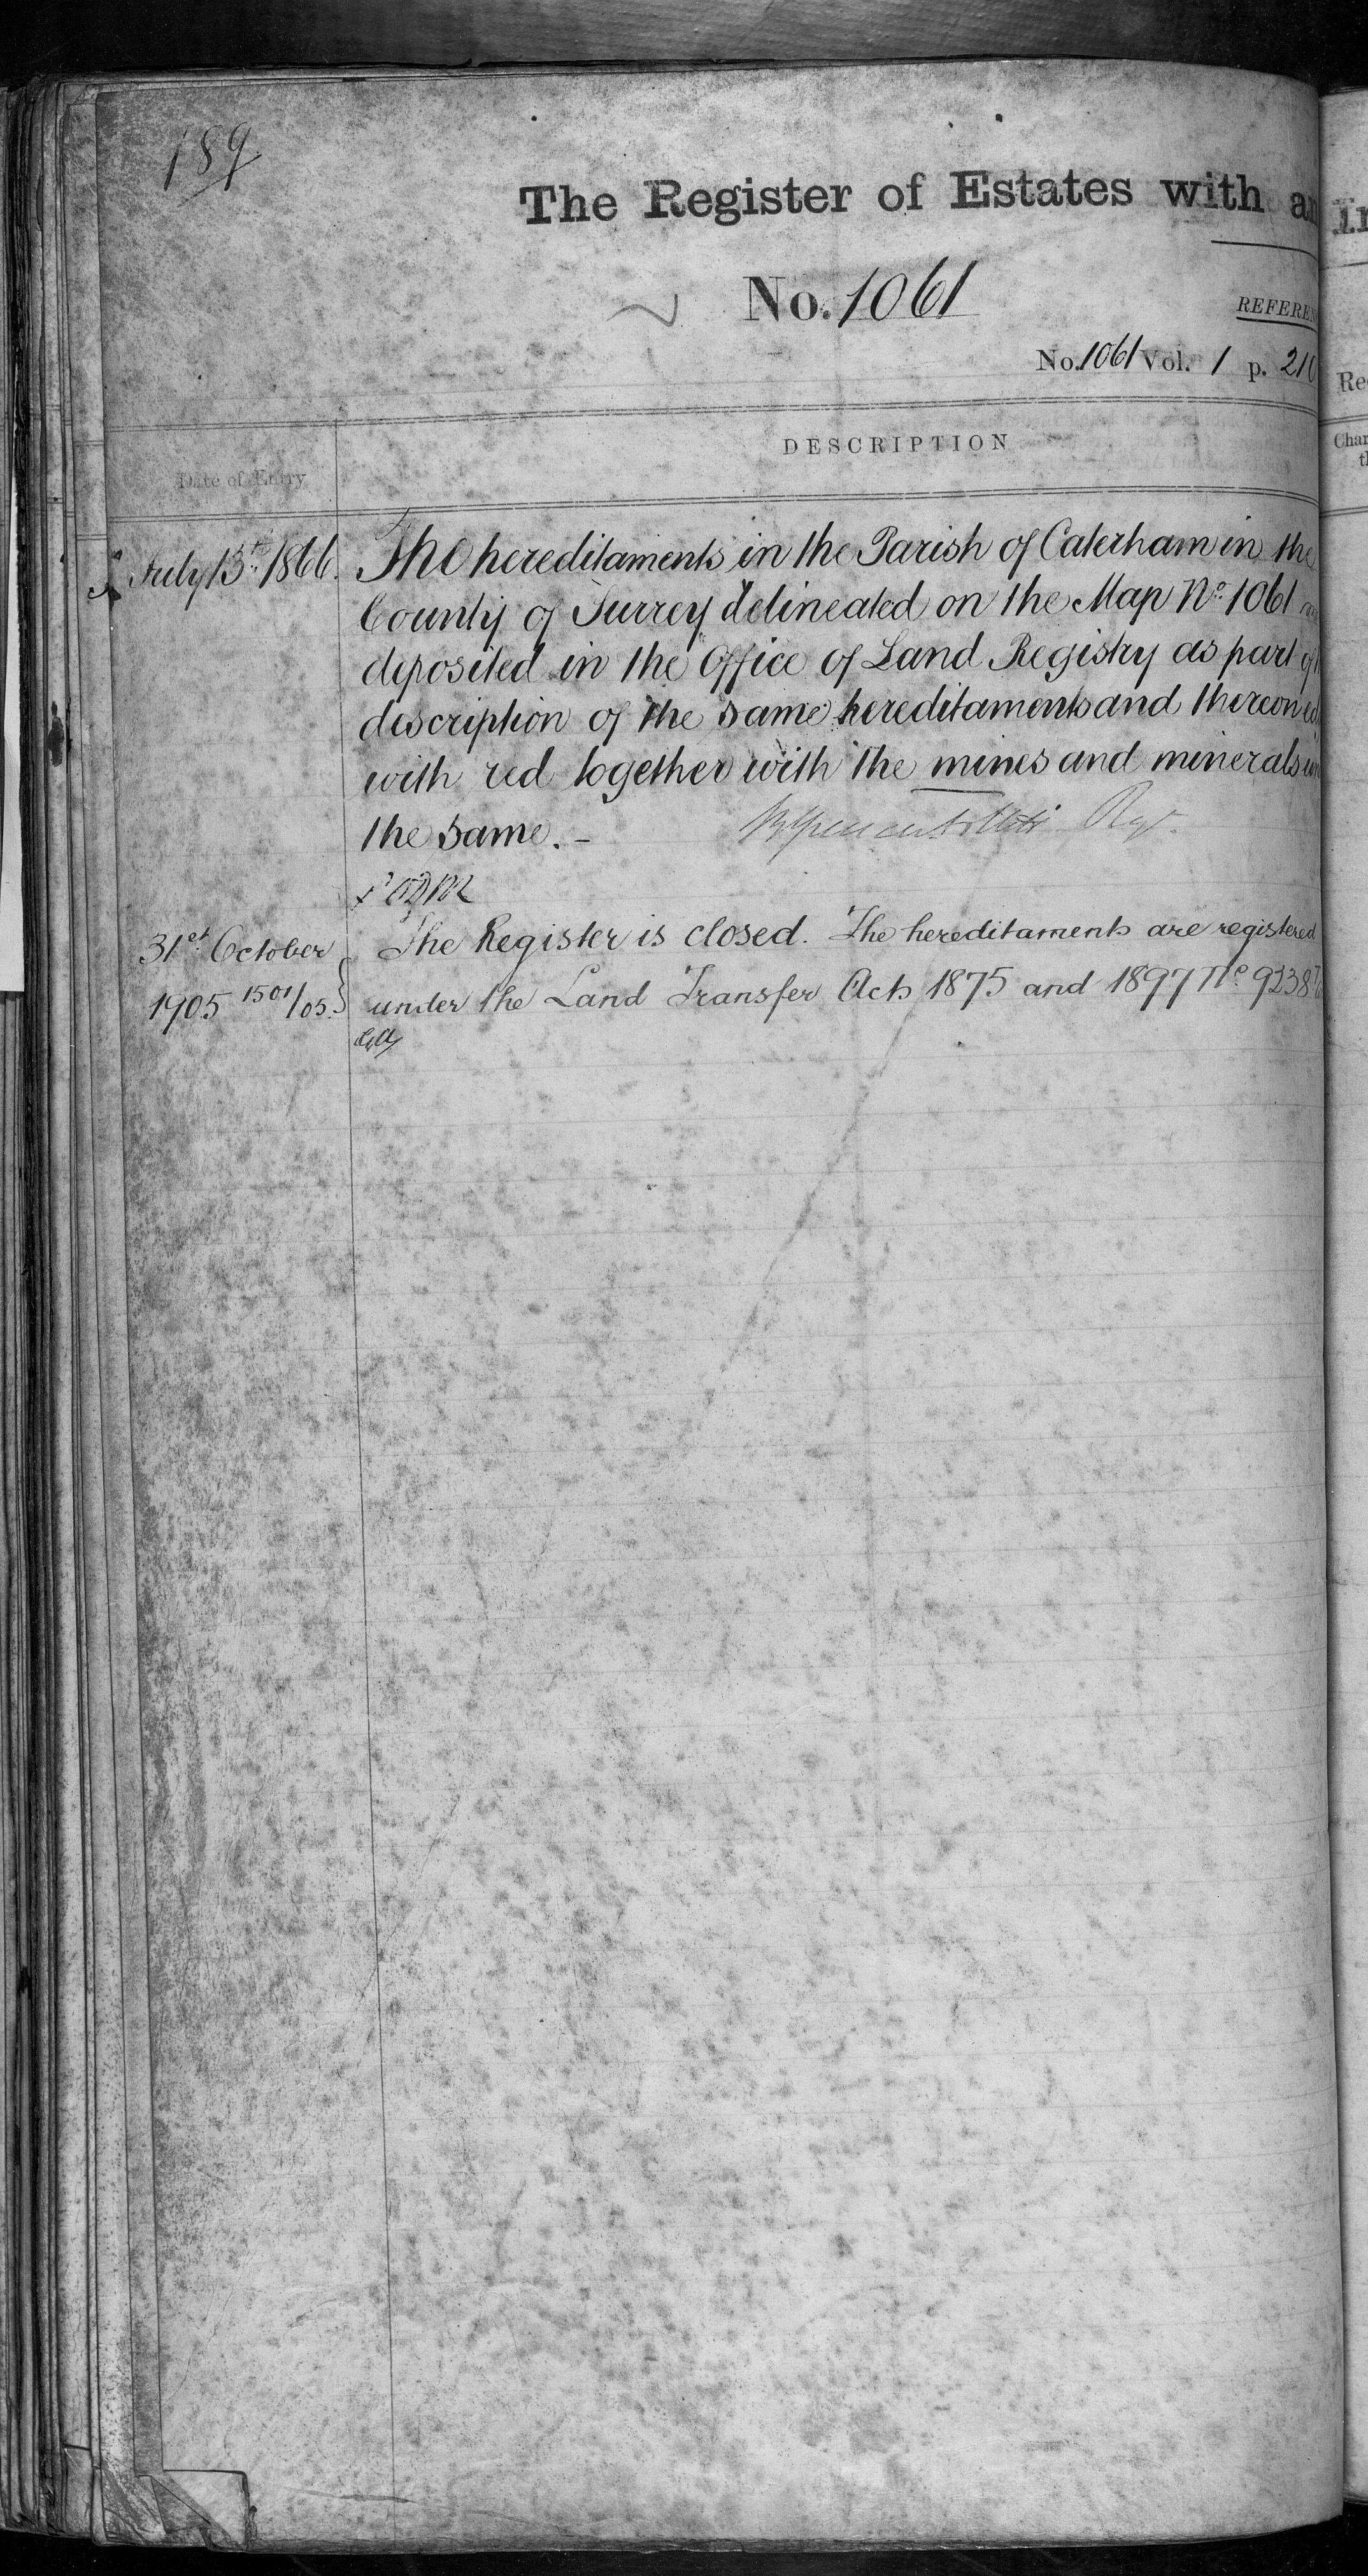 189
The Register of Estates with an
No. 1061
REFEREN
No. 1061 Vol. 1 p. 210
Date of Entry
DESCRIPTION
July 13th 1866. The hereditaments in the Parish of Caterham in the
County of Surrey delineated on the Map No. 1061
deposited in the Office of Land Registry as part of
description of the same hereditaments and thereon
with red together with the mines and minerals
the same. –
Regr.
31st October The Register is closed. The hereditaments are registered
1905 1501/05. under the Land Transfer Acts 1875 and 1897
Re
Char